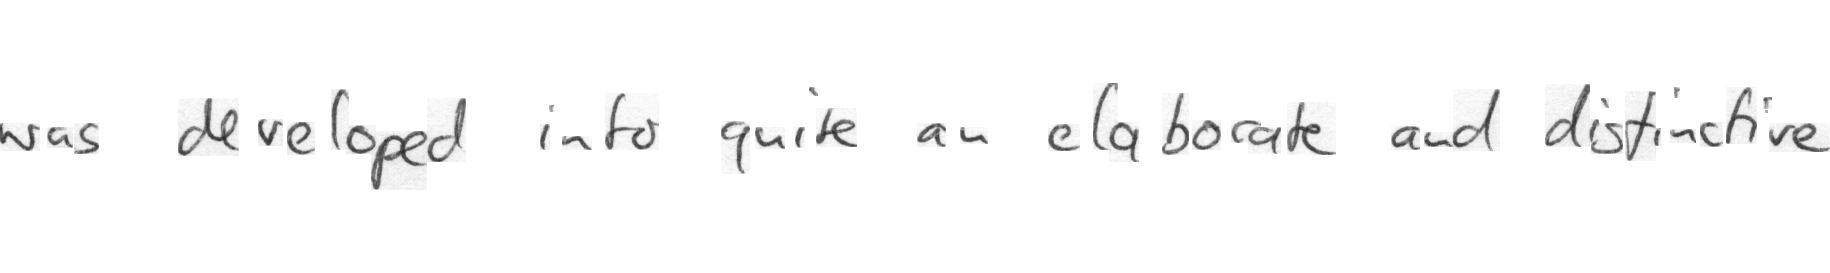 was developed into quite an elaborate and distinctive